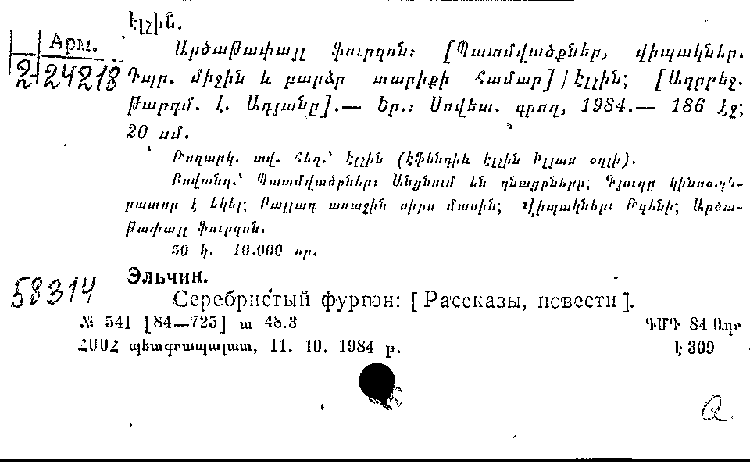 Էլչին.
Арм.
2-24218
Արծաթափայլ ֆուրգոն: [Պատմվածքներ, վիպակներ.
Դպր. միջին և բարձր տարիքի համար] / Էլչին; [Ադրբեջ.
թարգմ. Լ. Ադյանը].— Եր.: Սովետ. գրող, 1984.— 186 էջ;
20 սմ.
Թողարկ. տվ. հեղ.՝ Էլչին (Էֆենդիև Էլչին Իլյաս օղլի).
Բովանդ.՝ Պատմվածքներ: Անցնում են գնացքները; Գյուղը կինոօպե-
րատոր է եկել; Բալլադ առաջին սիրո մասին; Վիպակներ: Արծա-
թափայլ ֆուրգոն.
50 կ. 10.000 օր.
58314
Эльчин.
Серебристый фургон: [Рассказы, повести].
№ 541 [84—725] ա 48.3 ԳՄԴ 84 Ադր
ՀՍՍՀ պետգրապալատ, 11. 10. 1984 թ. Է 309
Q.